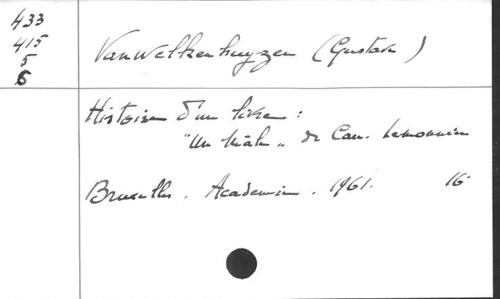 433
415
5
6
Vanwelkenhuyzen (Gustave)
Histoire d'un livre :
"Un Mâle" de Cam. Lemonnier
Bruxelles. Academie. 1961. 16°